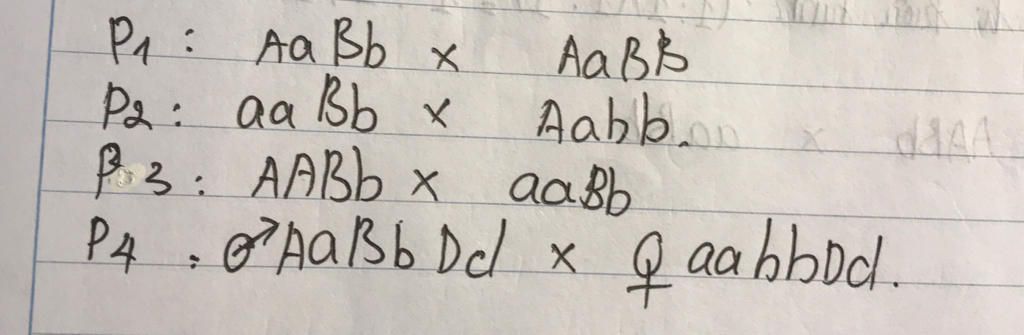 P1 : AaBb x AaBB
P2 : aaBb x Aabb.
P3 : AABb x aaBb
P4 : ♂AaBbDd x ♀ aabbDd.